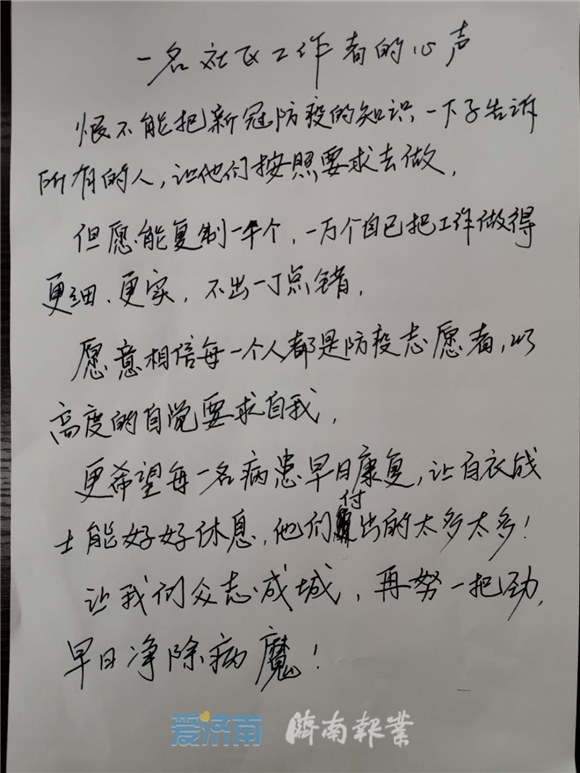 一名社区工作者的心声
恨不能把新冠防疫的知识一下子告诉
所有的人，让他们按照要求去做，
但愿能复制一千个，一万个自己把工作做得
更细、更实，不出一丁点错，
愿意相信每一个人都是防疫志愿者，以
高度的自觉要求自我，
更希望每一名病患早日康复，让白衣战
士能好好休息，他们付出的太多太多！
让我们众志成城，再努一把劲，
早日净除病魔！
爱济南 濟南報業